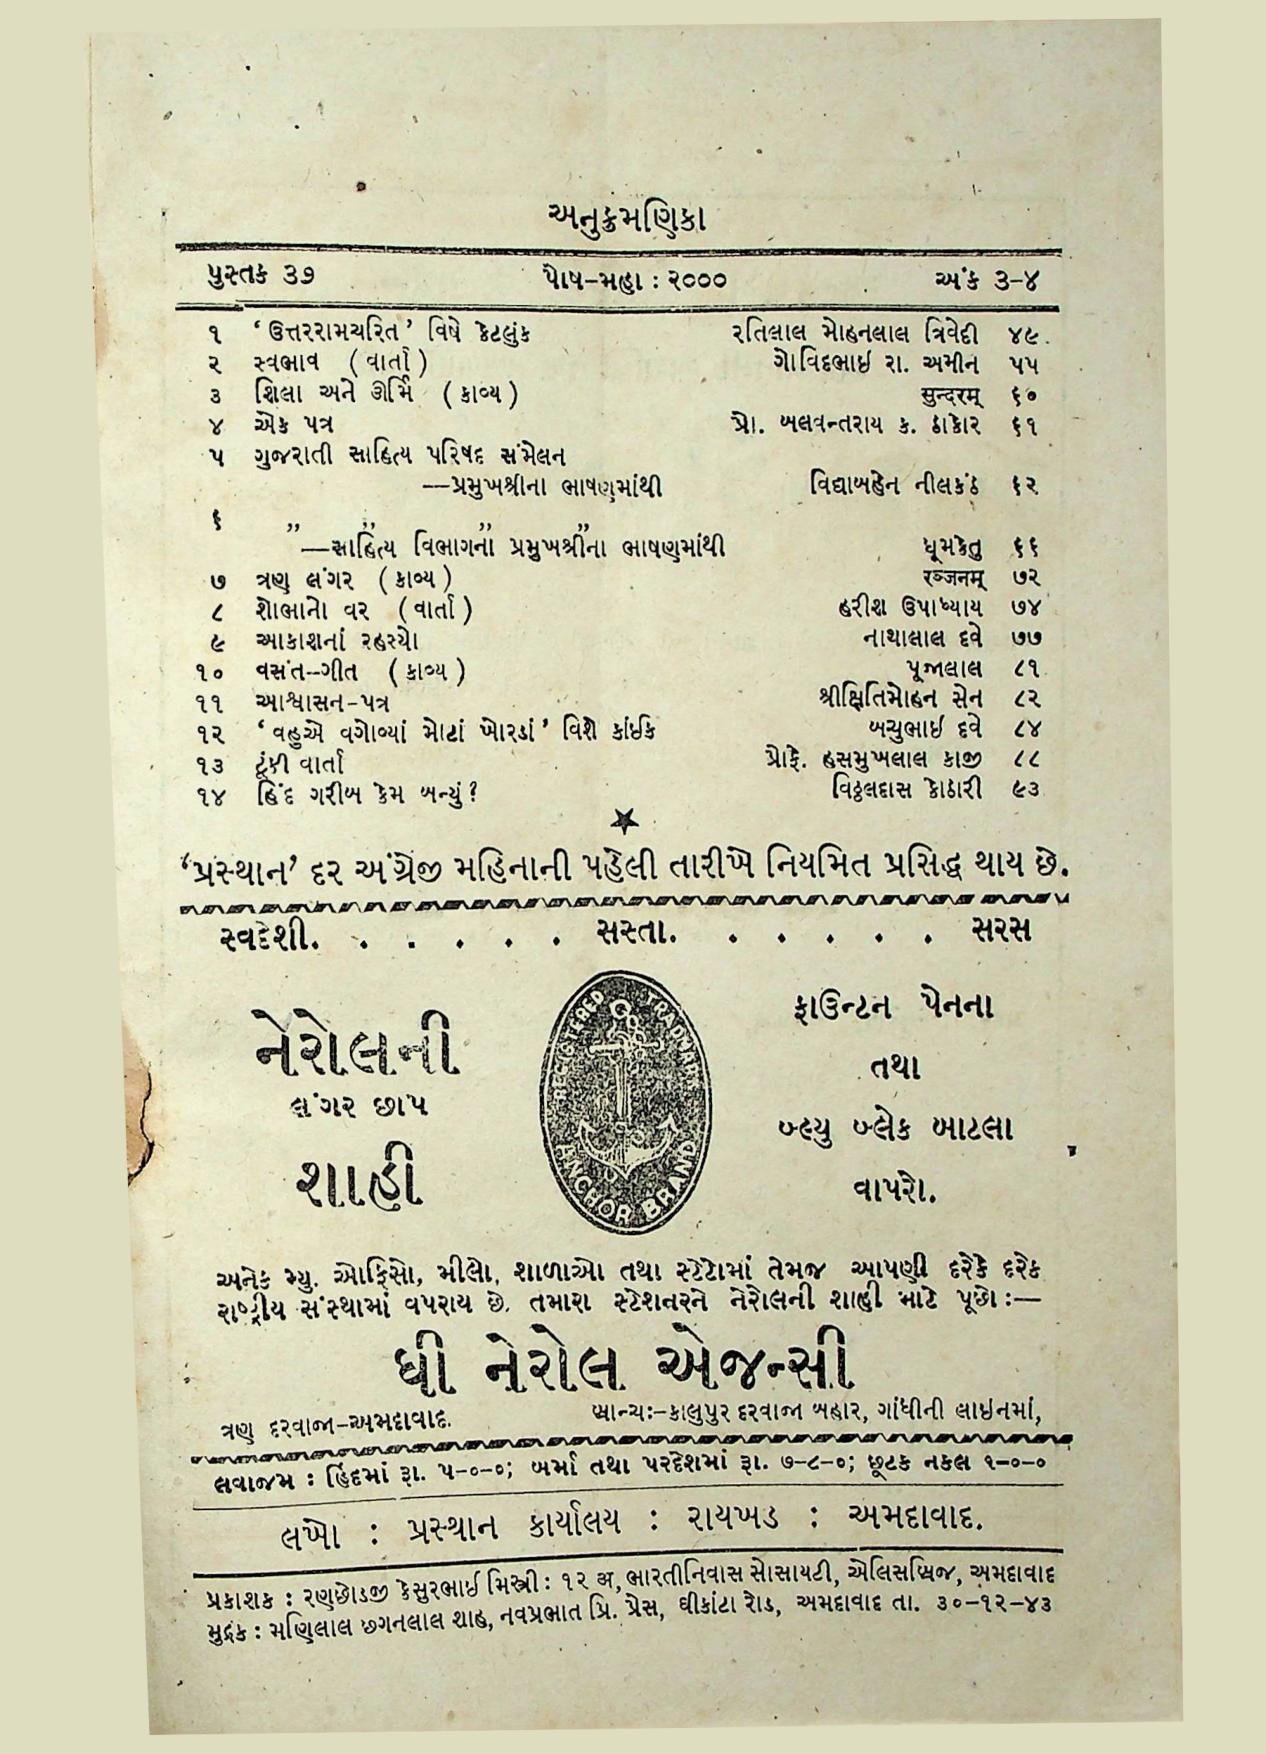 અનુક્રમણિકા
પુસ્તક ૩૭ પોષ-મહા : ૨૦૦૦ અંક ૩-૪
૧ ‘ઉત્તરરામચરિત’ વિષે કેટલુંક રતિલાલ મોહનલાલ ત્રિવેદી ૪૯
૨ સ્વભાવ (વાર્તા) ગોવિંદભાઇ રા. અમીન ૫૫
૩ શિલા અને ઊર્મિ (કાવ્ય) सुन्दरम् ૬૦
૪ એક પત્ર પ્રો. બલવન્તરાય ક. ઠાકોર ૬૧
૫ ગુજરાતી સાહિત્ય પરિષદ સંમેલન
—પ્રમુખશ્રીના ભાષણમાંથી વિદ્યાબહેન નીલકંઠ ૬૨
૬ ” ” ” ”
—સાહિત્ય વિભાગના પ્રમુખશ્રીના ભાષણમાંથી ધૂમકેતુ ૬૬
૭ ત્રણ લંગર (કાવ્ય) रञ्जनम् ૭૨
૮ શોભાનો વર (વાર્તા) હરીશ ઉપાધ્યાય ૭૪
૯ આકાશનાં રહસ્યો નાથાલાલ દવે ૭૭
૧૦ વસંત--ગીત (કાવ્ય) પૂજાલાલ ૮૧
૧૧ આશ્વાસન-પત્ર શ્રીક્ષિતિમોહન સેન ૮૨
૧૨ ‘વહુએ વગોવ્યાં મોટાં ખોરડાં’ વિશે કાંઈક બચુભાઇ દવે ૮૪
૧૩ ટૂંકી વાર્તા પ્રોફે. હસમુખલાલ કાજી ૮૮
૧૪ હિંદ ગરીબ કેમ બન્યું? વિઠ્ઠલદાસ કોઠારી ૯૩
‘પ્રસ્થાન’ દર અંગ્રેજી મહિનાની પહેલી તારીખે નિયમિત પ્રસિદ્ધ થાય છે.
સ્વદેશી. . . . . . સસ્તા. . . . . . સરસ
નેરોલની
લંગર છાપ
શાહી
REGISTERED TRADMARK
ANCHOR BRAND
ફાઉન્ટન પેનના
તથા
બ્લ્યુ બ્લેક બાટલા
વાપરો.
અનેક મ્યુ. ઓફિસો, મીલો, શાળાઓ તથા સ્ટેટોમાં તેમજ આપણી દરેકે દરેક
રાષ્ટ્રીય સંસ્થામાં વપરાય છે. તમારા સ્ટેશનરને નેરોલની શાહી માટે પૂછો :—
ધી નેરોલ એજન્સી
ત્રણ દરવાજા-અમદાવાદ. બ્રાન્ચઃ-કાલુપુર દરવાજા બહાર, ગાંધીની લાઇનમાં,
લવાજમ : હિંદમાં રૂા. ૫-૦-૦; બર્મા તથા પરદેશમાં રૂા. ૭-૮-૦; છૂટક નકલ ૧-૦-૦
લખો : પ્રસ્થાન કાર્યાલય : રાયખડ : અમદાવાદ.
પ્રકાશક : રણછોડજી કેસુરભાઈ મિસ્ત્રી : ૧૨ अ, ભારતીનિવાસ સોસાયટી, એલિસબ્રિજ, અમદાવાદ
મુદ્રક : મણિલાલ છગનલાલ શાહ, નવપ્રભાત પ્રિ. પ્રેસ, ઘીકાંટા રોડ, અમદાવાદ તા. ૩૦-૧૨-૪૩